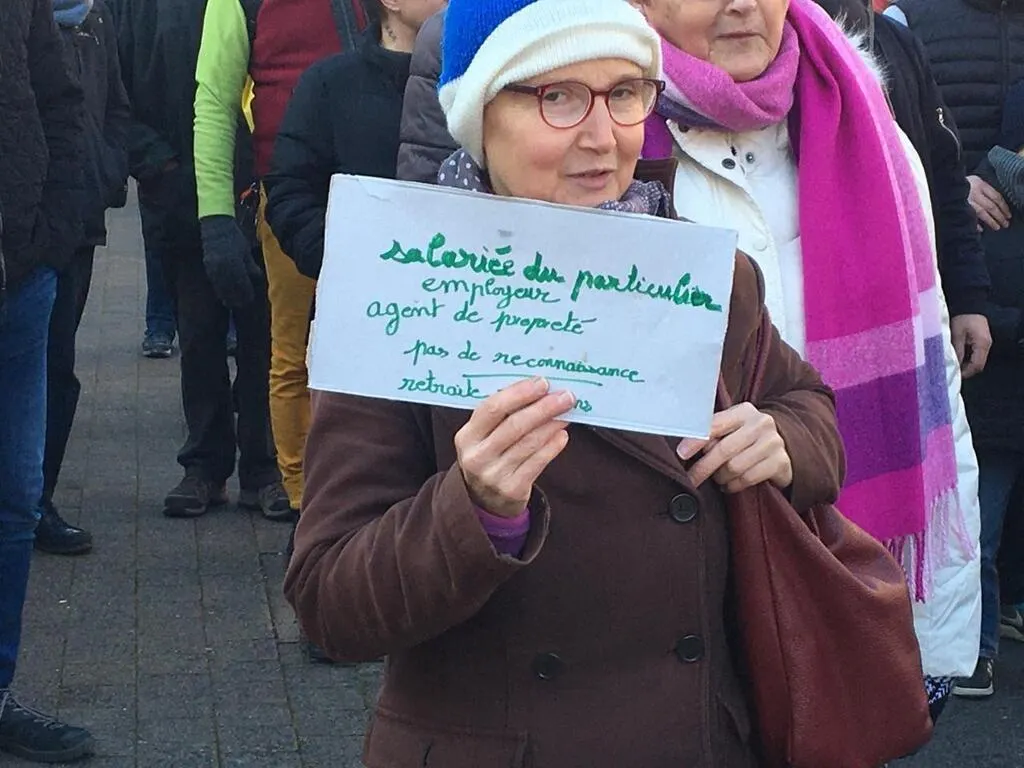 salariée du particulier
employeur
agent de propreté
pas de reconnaissance
retraite